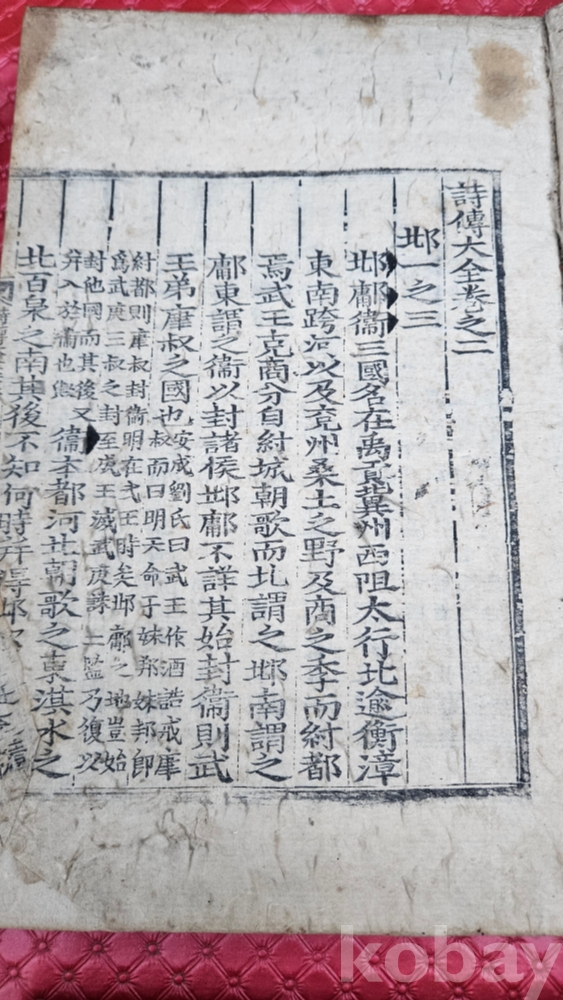 詩傳大全卷之二
邶一之三
邶鄘衞三國名在禹貢冀州西阻太行北逾衡漳
東南跨河以及兗州桑土之野及商之季而紂都
焉武王克商分自紂城朝歌而北謂之邶南謂之
鄘東謂之衞以封諸侯邶鄘不詳其始封衞則武
王弟康叔之國也
安成劉氏曰武王作酒誥戒康
叔而曰明大命于妹邦妹邦卽
紂都則康叔封衞明在武王時矣邶鄘之地豈始
爲武庚三叔之封至成王滅武庚誅二監乃復以
封他國而其後又
幷入於衞也
衞本都河北朝歌之東淇水之
北百泉之南其後不知何時幷得邶
kobay